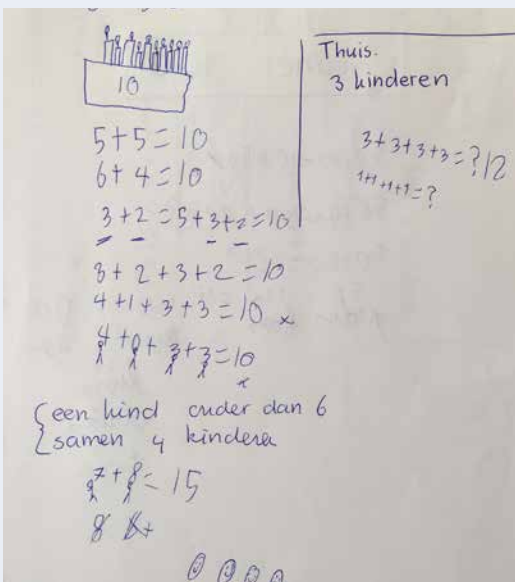 10
5+5=10
6+4=10
3+2=5+3+2=10
3+2+3+2=10
4+1+3+3=10 x
4+0+3+3=10
x
een kind ouder dan 6
samen 4 kindera
7+8=15
8
Thuis.
3 kinderen
3+3+3+3=?12
1+1+1+1=?